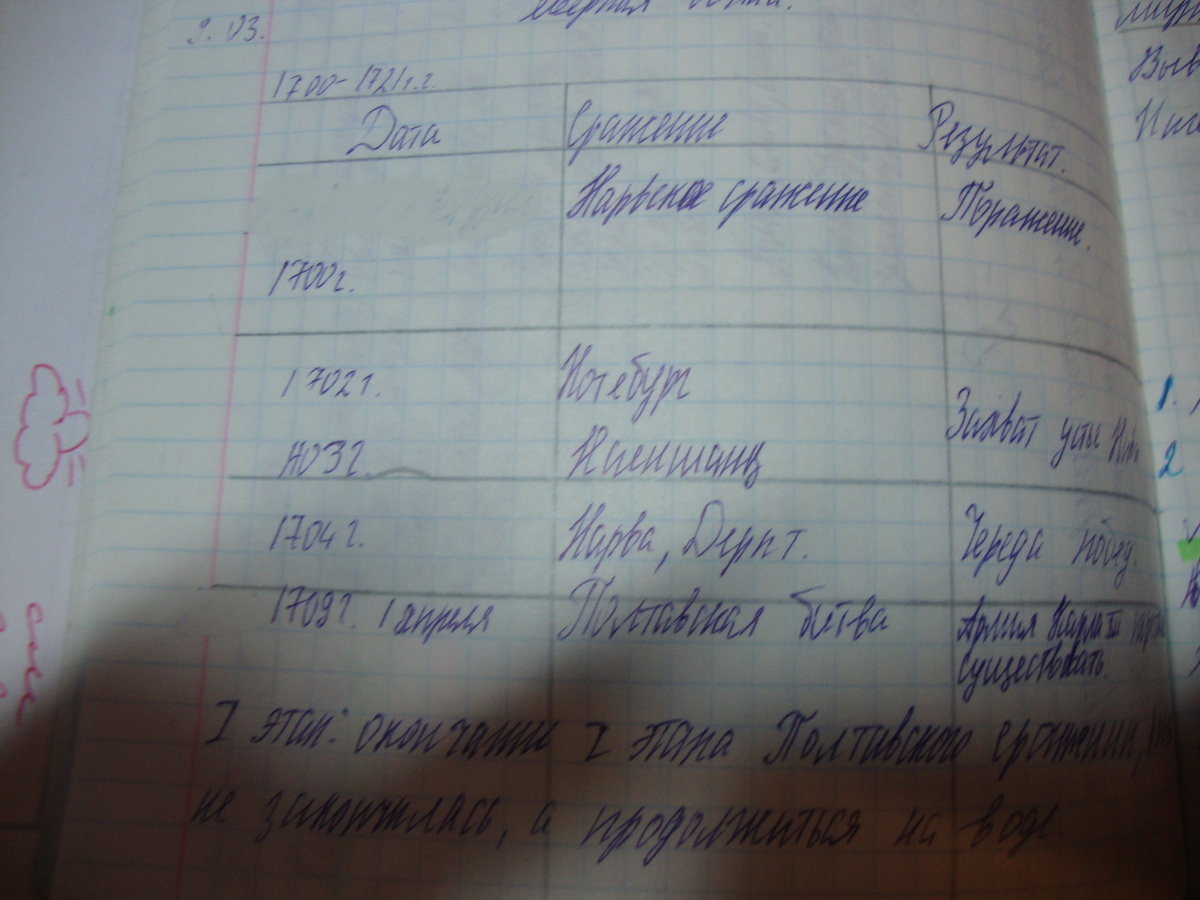 9.03.
1700-1721г.г.
Дата Сражение Результат.
Нарвское сражение Поражение.
1700г.
1702г. Нотебург
Захват устья
1703г. Ниеншанц
1704г. Нарва, Дерпт. Череда побед.
1709г. 1 апреля Полтавская битва Армия Карла III
существовать.
I этап: окончание I этапа Полтавского сражении,
не закончилась, а продолжиться на воде
1.
2